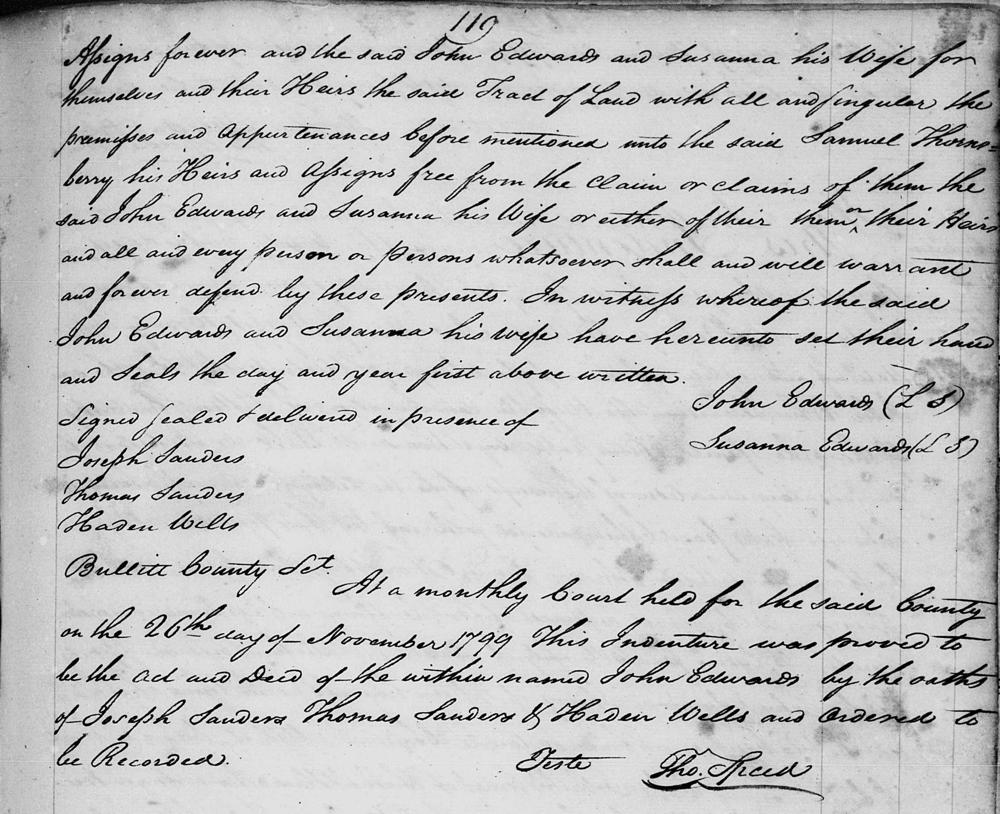 119
Assigns forever and the said John Edwards and Susanna his Wife for
themselves and their Heirs the said Tract of Land with all and singular the
premisses and appurtenances before mentioned unto the said Samuel Thorns=
berry his Heirs and Assigns free from the claim or claims of them the
said John Edwards and Susanna his Wife or either of their them or their Heirs
and all and every person or persons whatsoever shall and will warrant
and forever defend by these presents. In witness whereof the said
John Edwards and Susanna his wife have hereunto set their hand
and Seals the day and year first above written.
John Edwards (L S)
Signed sealed & deliverd in presence of
Susanna Edwards (L S)
Joseph Sanders
Thomas Sanders
Haden Wells
Bullitt County Sct.
At a monthly Court held for the said County
on the 26th day of November 1799 This Indenture was proved to
be the act and Deed of the within named John Edwards by the oaths
of Joseph Sanders Thomas Sanders & Haden Wells and ordered to
be Recorded.
Teste Tho. Speed